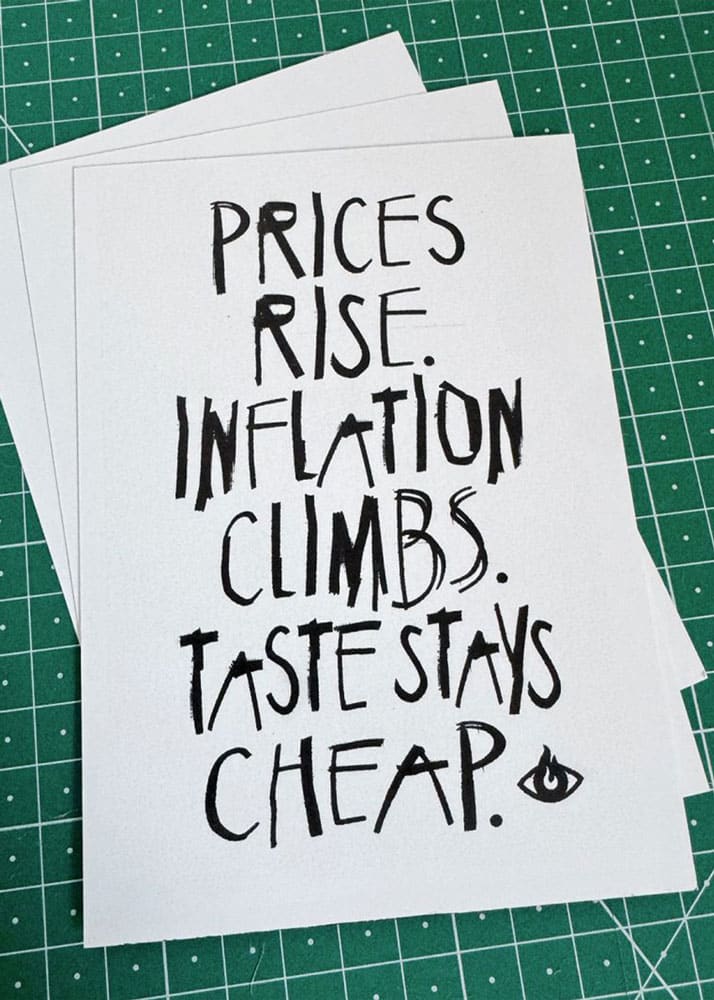 PRICES
RISE.
INFLATION
CLIMBS.
TASTE STAYS
CHEAP.